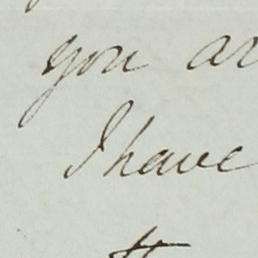 you ar
I have